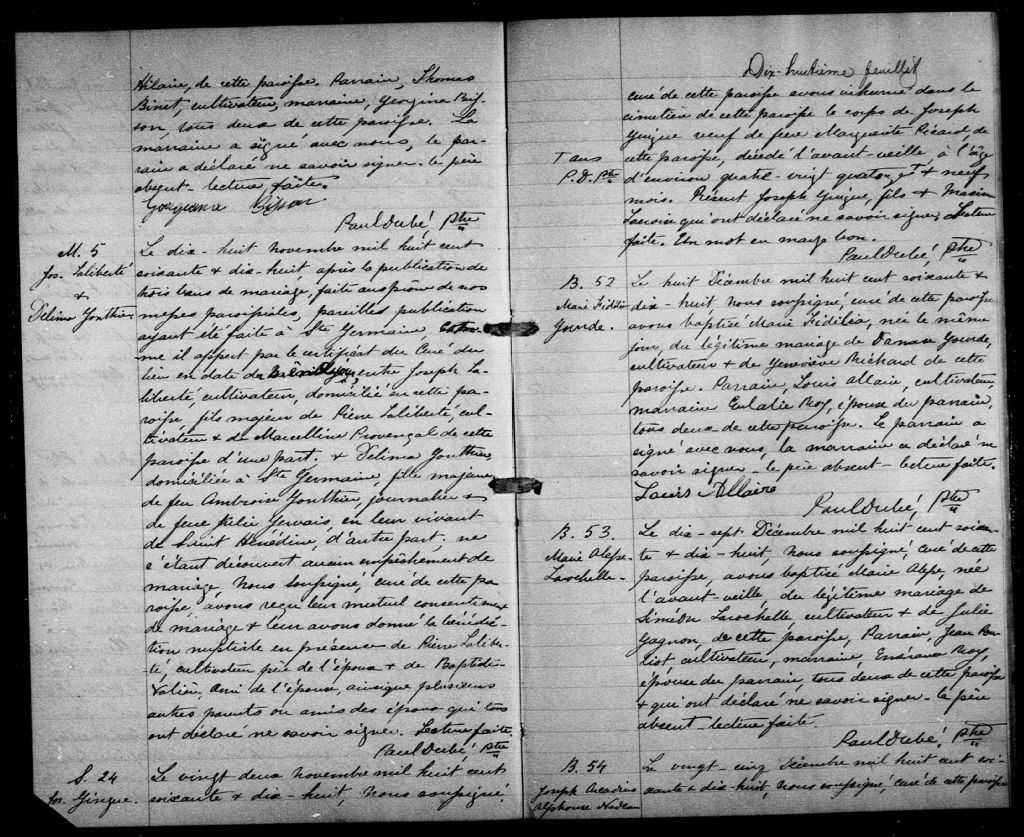 Hilaire, de cette paroisse. Parrain, Thomas
Binet, cultivateur, marraine, Georgina Bis-
son, tous deux de cette paroisse. La
marraine a signé avec nous, le par-
rain a déclaré ne savoir signer. le père
absent. lecture faite.
Georgiana Bisson
Paul Dubé, Ptre
M. 5
Jos. Laliberté
&
Délima Gonthier
Le dix-huit Novembre mil huit cent
soixante & dix-huit, après la publication de
trois bans de mariage, faite au prône de nos
messes paroissiales, pareilles publication
ayant été faite à Ste Germaine com-
me il appert par le certificat du Curé du
lieu en date de entre Joseph La-
liberté, cultivateur, domicilié en cette pa-
roisse, fils majeur de Pierre Laliberté, cul-
tivateur & de Marcelline Provençal de cette
paroisse d'une part. & Délima Gonthier
domiciliée à Ste Germaine, fille majeure
de feu Ambroise Gonthier, journalier &
de feue Julie Gervais, en leur vivant
de Saint Hénédine, d'autre part; ne
s'étant découvert aucun empêchement de
mariage, Nous soussigné, curé de cette pa-
roisse, avons reçu leur mutuel consentement
de mariage & leur avons donné la bénédic-
tion nuptiale en présence de Pierre Laliber-
té, cultivateur père de l'époux & de Baptiste
ami de l'épouse, ainsique plusieurs
autres parents ou amis des époux qui tous
ont déclaré ne savoir signer. Lecture faite
Paul Dubé, Ptre
S. 24
Jos. Gingue.
Le vingt deux Novembre mil huit cent
soixante & dix-huit, Nous soussigné,
Dix-huitième feuillet
curé de cette paroisse avons inhumé dans le
cimetière de cette paroisse le corps de Joseph
Guigue veuf de feue Marguerite Picard, de
cette paroisse, décédé l'avant-veille, à l'âge
T ans
P. D. Ptre
d'environ quatre-vingt quatorze T & neuf
mois. Présent Joseph Guigue, fils & Maxim
Lacroix qui ont déclaré ne savoir signer. Lecture
faite. Un mot en marge bon.
Paul Dubé, Ptre
B. 52
Marie Fidélia
Gourde.
Le huit Décembre mil huit cent soixante &
dix-huit Nous soussigné curé de cette paroisse
avons baptisé Marie Fidélia, née le même
jour du légitime mariage de Damase Gourde,
cultivateur & de Geneviève Richard de cette
paroisse. Parrain, Louis Allaire, cultivateur,
marraine Eulalie Roy, épouse du parrain,
tous deux de cette paroisse. Le parrain a
signé avec nous, la marraine a déclaré ne
savoir signer. le père absent. lecture faite.
Louis Allaire
Paul Dubé, Ptre
B. 53.
Marie Alefse
Larochelle.
Le dix-sept Décembre mil huit cent soixan-
te & dix-huit, Nous soussigné, curé de cette
paroisse, avons baptisé Marie Alefse, née
l'avant-veille du légitime mariage de
Siméon Larochelle cultivateur & de Julie
Gagnon, de cette paroisse, Parrain, Jean Pou-
liot cultivateur, marraine, Roy,
épouse du parrain, tous deux de cette paroisse
& qui ont déclaré ne savoir signer. le père
absent. lecture faite.
Paul Dubé, Ptre
B. 54
Joseph Arcadius
Alphonse Nadeau
Le vingt cinq Décembre mil huit cent soi-
xante & dix-huit, nous soussigné, curé de cette paroisse